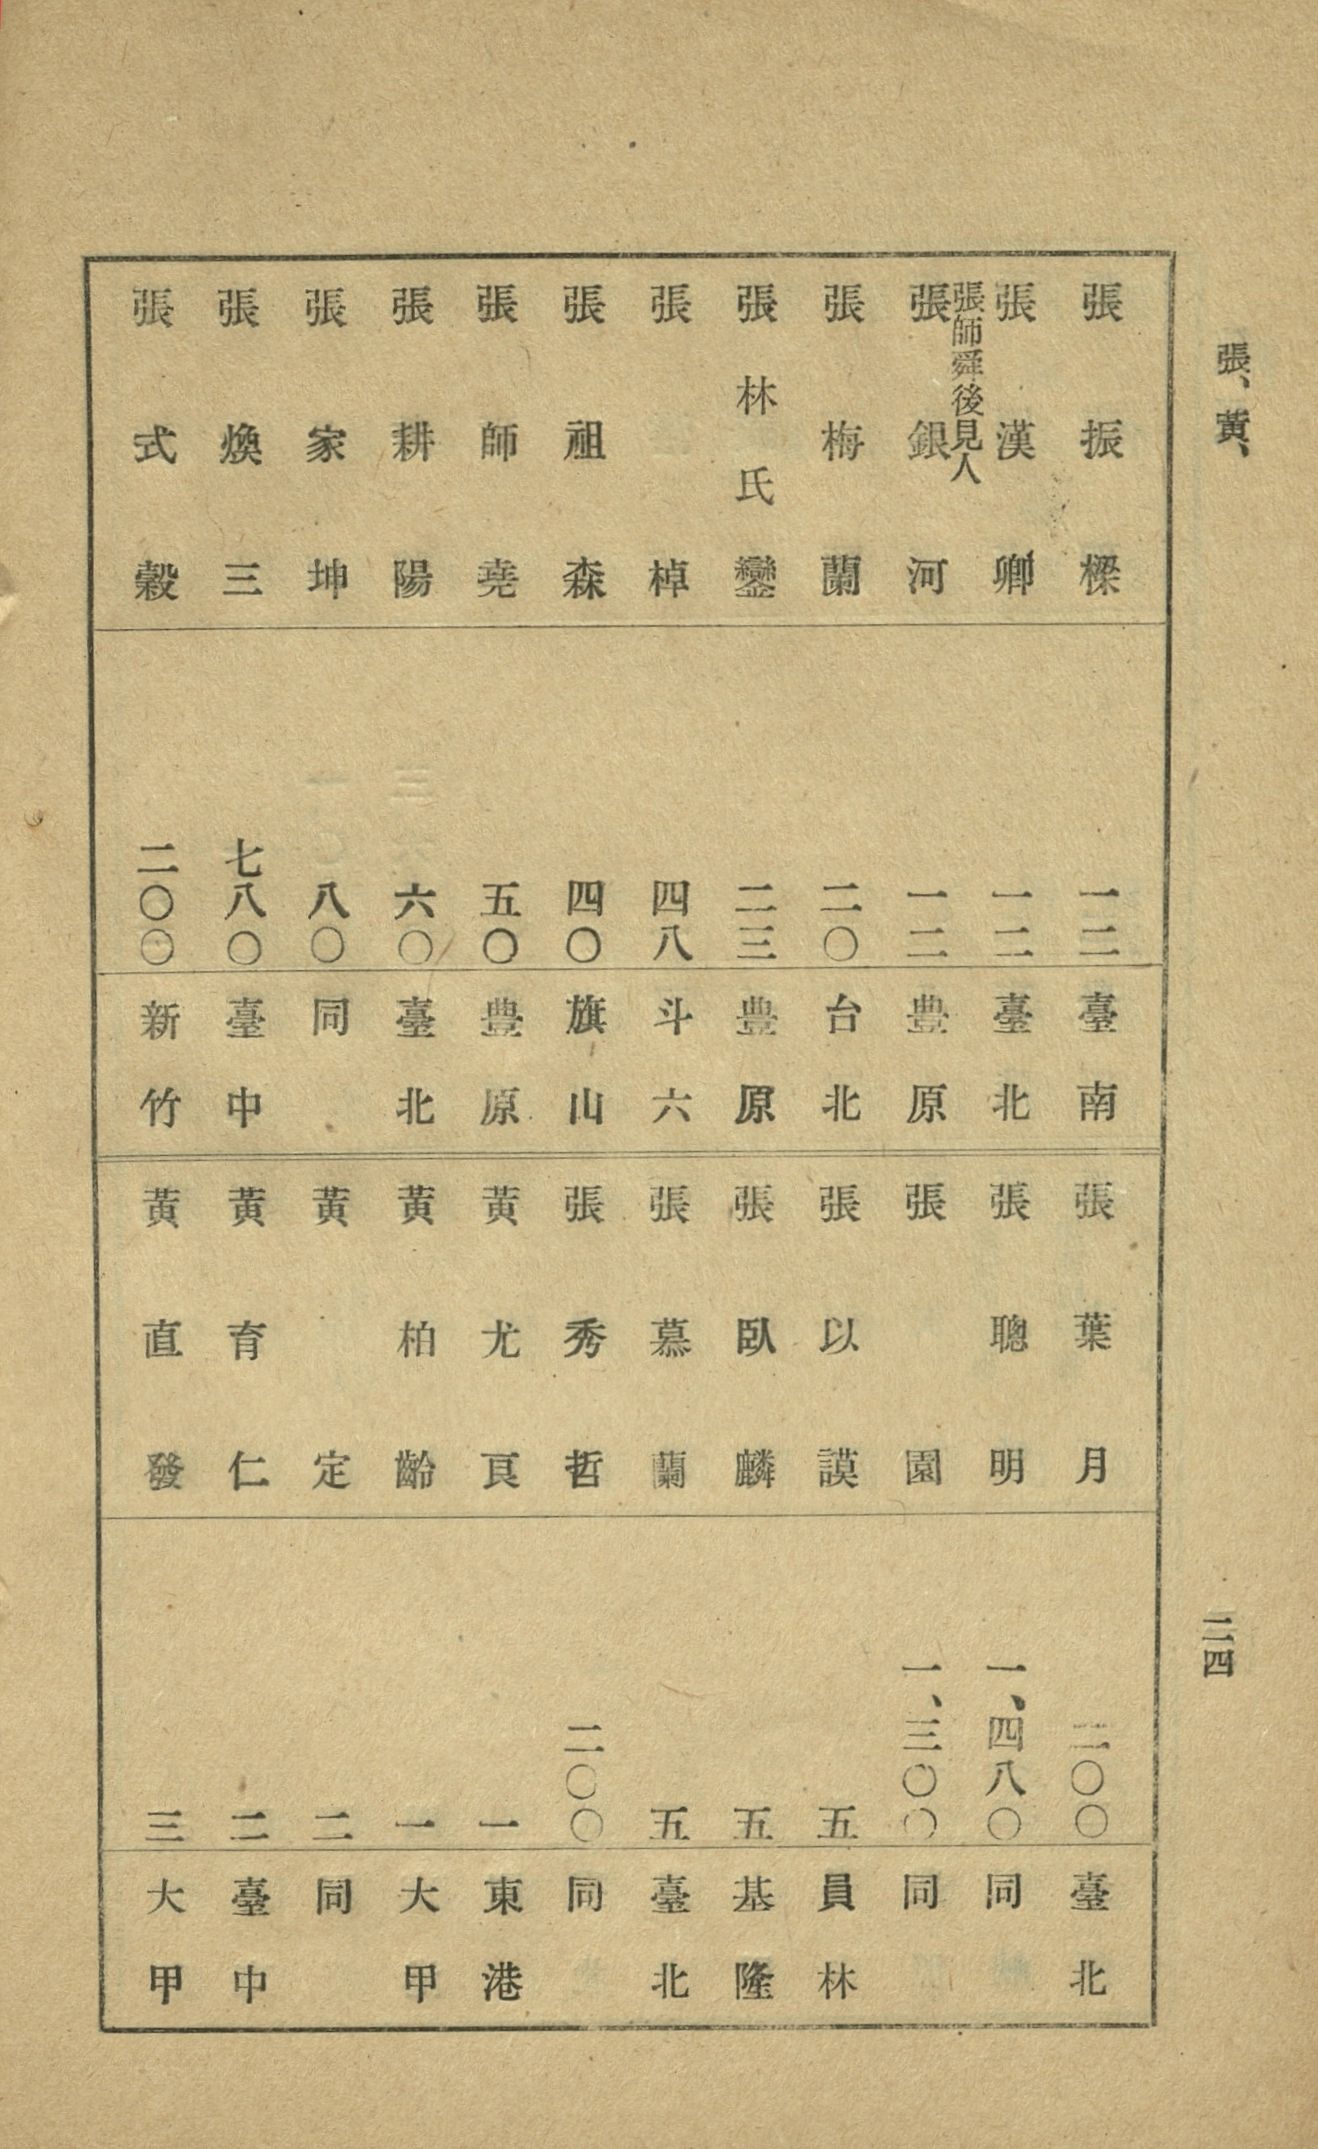 張、黃、
二四
張振樑 一二 臺南
張漢卿 一二 臺北
張師舜後見人
張銀河 一二 豊原
張梅蘭 二〇 台北
張林氏鑾 二三 豊原
張棹 四八 斗六
張祖森 四〇 旗山
張師堯 五〇 豊原
張耕陽 六〇 臺北
張家坤 八〇 同
張煥三 七八〇 臺中
張式穀 二〇〇 新竹
張葉月 二〇〇 臺北
張聰明 一、四八〇 同
張園 一、三〇〇 同
張以謨 五 員林
張臥麟 五 基隆
張慕蘭 五 臺北
張秀哲 二〇〇 同
黃尤良 一 東港
黃柏齡 一 大甲
黃定 二 同
黃育仁 二 臺中
黃直發 三 大甲